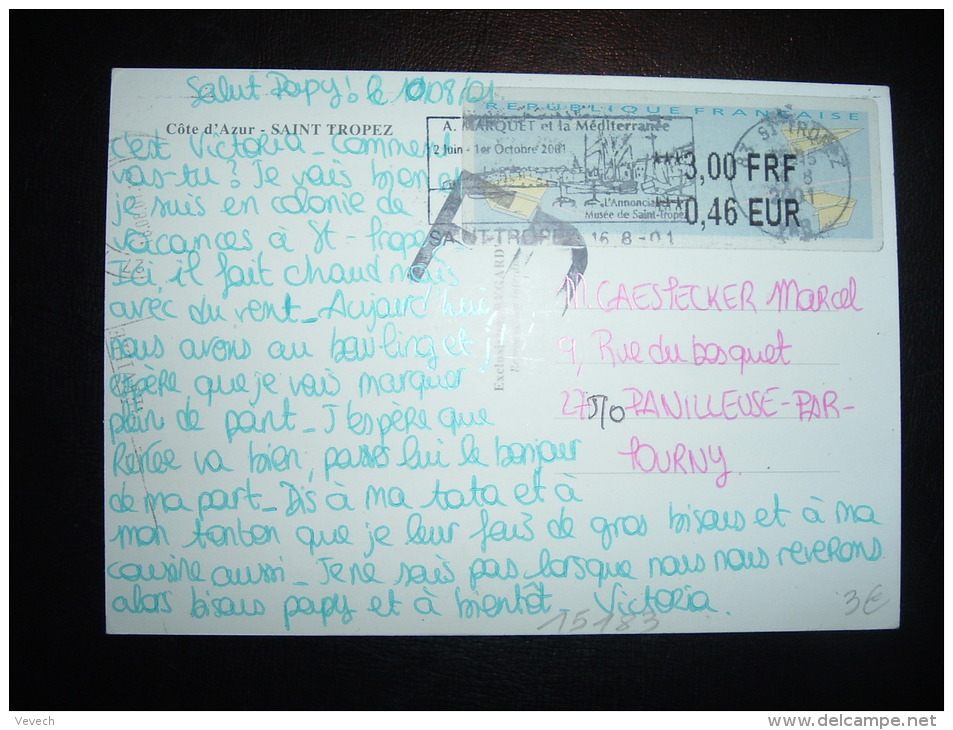 Salut Papy! le 10/08/01
Côte d'Azur - SAINT TROPEZ
C'est Victoria - Comment
vas-tu? Je vais bien et
je suis en colonie de
vacances à St-Trope
Ici, il fait chaud mais
avec du vent - Aujourd'hui
nous avons au bowling et j'
espère que je vais marquer
plein de point - J'espère que
Renée va bien, passes lui le bonjour
de ma part - Dis à ma tata et à
mon tonton que je leur fais de gros bisous et à ma
cousine aussi - Je ne sais pas lorsque nous nous reverons
alors bisous papy et à bientôt. Victoria.
REPUBLIQUE FRANCAISE
A. MARQUET et la Méditerranée
2 Juin - 1er Octobre 2001
L'Annonciade
Musée de Saint-Tropez
SAINT-TROPEZ 16-8-01
***3,00 FRF
***0,46 EUR
83 ST-TROPEZ
2001
M. CAESTECKER Marcel
9, Rue du bosquet
27510 PANILLEUSE-PAR-
TOURNY
15183
3€
Vevech
www.delcampe.net